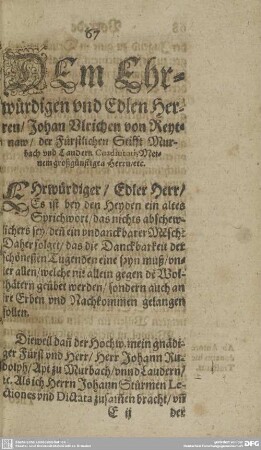 67
DEm Ehr-
würdigen vnd Edlen Her-
ren/ Johan Vlrichen von Reyt-
naw/ der Fürstlichen Stifft Mur-
bach vnd Laudern Custodi, Mei-
nem großgünstigẽ Herrn/etc.
EHrwürdiger/ Edler Herr/
Es ist bey den Heyden ein altes
Sprichwort/ das nichts abschew-
lichers sey/ deñ ein vndanckbarer Mẽsch:
Daher folget/ das die Danckbarkeit der
schönesten Tugenden eine seyn muß/ vn-
ter allen/ welche nit allein gegen dẽ Wol-
thätern geübet werden/ sondern auch an
ire Erben vnd Nachkommen gelangen
sollen.
Dieweil denn der Hochw. mein gnädi-
ger Fürst vnd Herr/ Herr Johann Ru-
dolph/ Apt zu Murbach/ vnnd Laudern/
etc. Als ich Herrn Johann Stürmen Le-
ctiones vnd Dictata zusam̃en bracht/ vñ
E ij der